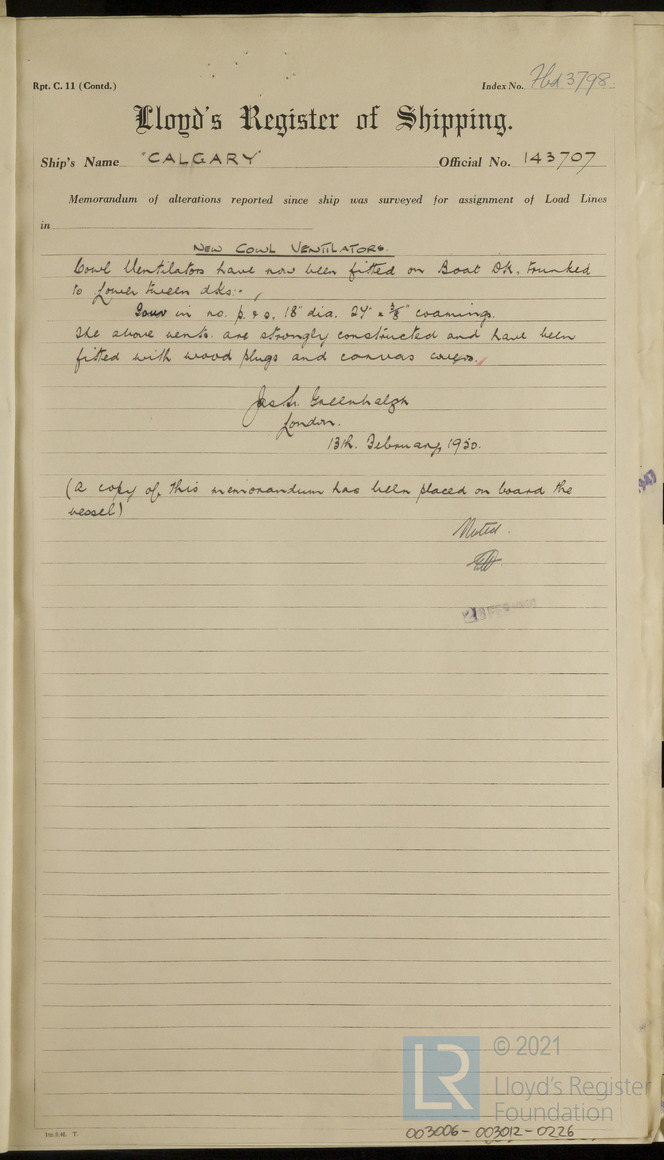 Rpt. C. 11 (Contd.)
Index No. Fbd 3798.
Lloyd's Register of Shipping.
Ship's Name "CALGARY" Official No. 143707
Memorandum of alterations reported since ship was surveyed for assignment of Load Lines
in
NEW COWL VENTILATORS.
Cowl Ventilators have now been fitted on Boat Dk, trunked
to Lower tween dks:-
Four in no. p. & s. 18" dia. 24" x 3/8" coamings.
The above vents. are strongly constructed and have been
fitted with wood plugs and canvas covers.
Jas. Greenhalgh
London.
13th. February, 1930.
(A copy of this memorandum has been placed on board the
vessel)
Noted.
© 2021
LR Lloyd's Register
Foundation
003006-003012-0226